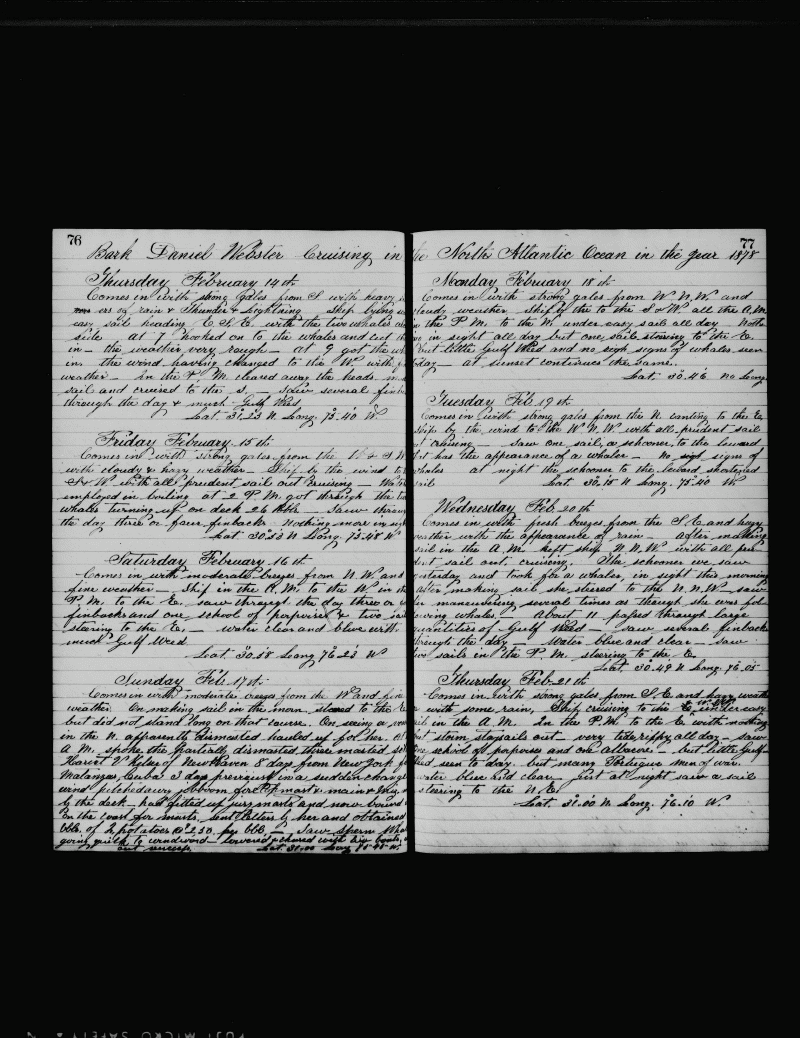 76
Bark Daniel Webster Cruising in
Thursday February 14th
Comes in with strong gales from S with heavy
ers of rain & Thunder & Lightning Ship lying
easy sail heading E.S.E. with the two whales
side at 7 hooked on to the whales and cut
in - the weather very rough - at 9 got the
in. the wind having changed to the W with
weather - in the P.M. cleared away the heads
sail and cruised to the Saw several finb
through the day & much Gulf Weed
Lat 31.23 N Long 75.40 W
Friday February 15th
Comes in with strong gales from the W & S W
with cloudy & hazy weather - Ship by the wind to
S & W with all prudent sail out Cruising -
employed in boiling at 2 P.M. got through the
whales turning up on deck 26 bbls - saw through
the day three or four finbacks nothing more in
Lat 30.53 N Long. 75.48 W
Saturday February 16th
Comes in with moderate breezes from N.W. and
fine weather - Ship in the A.M. to the W in the
P.M. to the E. saw through the day three or
finbacks and one school of porpoises & two sa
steering to the E. - water clear and blue with
much Gulf Weed
Lat 30.58 Long 76.23 W
Sunday Feb 17th
Comes in with moderate breezes from the W and fine
weather. On making sail in the morn. steered to the E
but did not stand long on that course. On seeing a
in the N. apparently dismasted hauled up for her. at
A.M. spoke the partially dismasted three masted
of New Haven 8 days from New York
Matanzas, Cuba 3 days previous in a sudden change
wind pitched away jibboom foretopmast & main &
by the deck - had fitted up jurymasts and now bound
on the coast for masts. Sent letters by her and obtained
bbl. of potatoes @ 2.50 per bbl - Saw Sperm
going quick to windward - lowered & chased with
out success. Lat. 31.00 Long
77
the North Atlantic Ocean in the year 1878
Monday February 18th
Comes in with strong gales from W.N.W. and
cloudy weather Ship to the S & W all the A.M.
in the P.M. to the N. under easy sail all day
in sight all day but one sail steering to the E.
but little Gulf Weed and no signs of whales seen
today - at sunset continues the same.
Lat. 30.46 no Long
Tuesday Feb 19th
Comes in with strong gales from the N. canting to the E.
Ship by the wind to the W.N.W. with all prudent sail
cruising - Saw one sail, a schooner to the leward
has the appearance of a whaler - no signs of
whales at night the schooner to the leward shortened
sail Lat. 30.18 N Long. 75.40 W
Wednesday Feb 20th
Comes in with fresh breezes from the S.E. and hazy
weather with the appearance of rain - after making
sail in the A.M. kept ship N.N.W. with all pru-
dent sail out, cruising. The schooner we saw
yesterday and took for a whaler, in sight this morning
after making sail she steered to the N.N.W - saw
her maneuvering several times as though she was fol
lowing whales. About 11 passed through large
quantities of Gulf Weed - saw several finbacks
through the day - Water blue and clear - saw
two sails in the P.M. steering to the E.
Lat. 30.49 N Long. 76.05
Thursday Feb. 21th
Comes in with strong gales from S.E. and hazy weather
with some rain, Ship cruising to the E. under easy
sail in the A.M. In the P.M. to the E with nothing
but storm staysails out - very tide rippy all day - saw
one school of porpoises and one albacore - but little Gulf
Weed seen to day. but many Portugese men of war.
water blue and clear. Just at night saw a sail
steering to the N.E.
Lat. 31.00 N Long. 76.10 W.